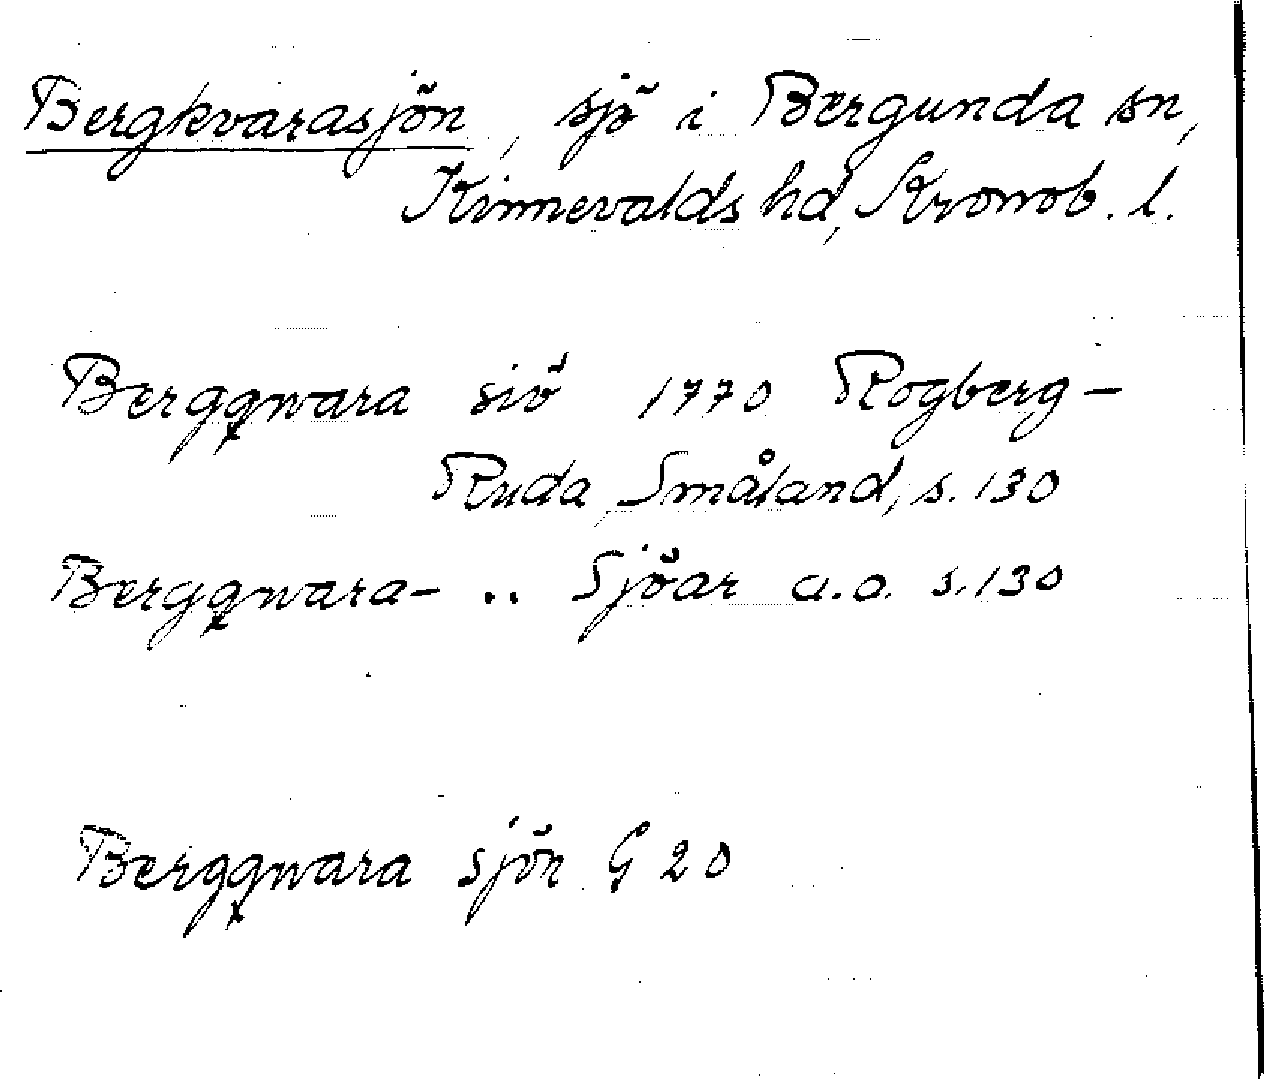 Bergkvarasjön, sjö i Bergunda sn,
Kinnevalds hd, Kronob. l.
Bergqwara siö 1770 Rogberg-
Ruda, Småland, s. 130
Bergqwara- .. Sjöar a.a. s. 130
Bergqwara sjön G 20